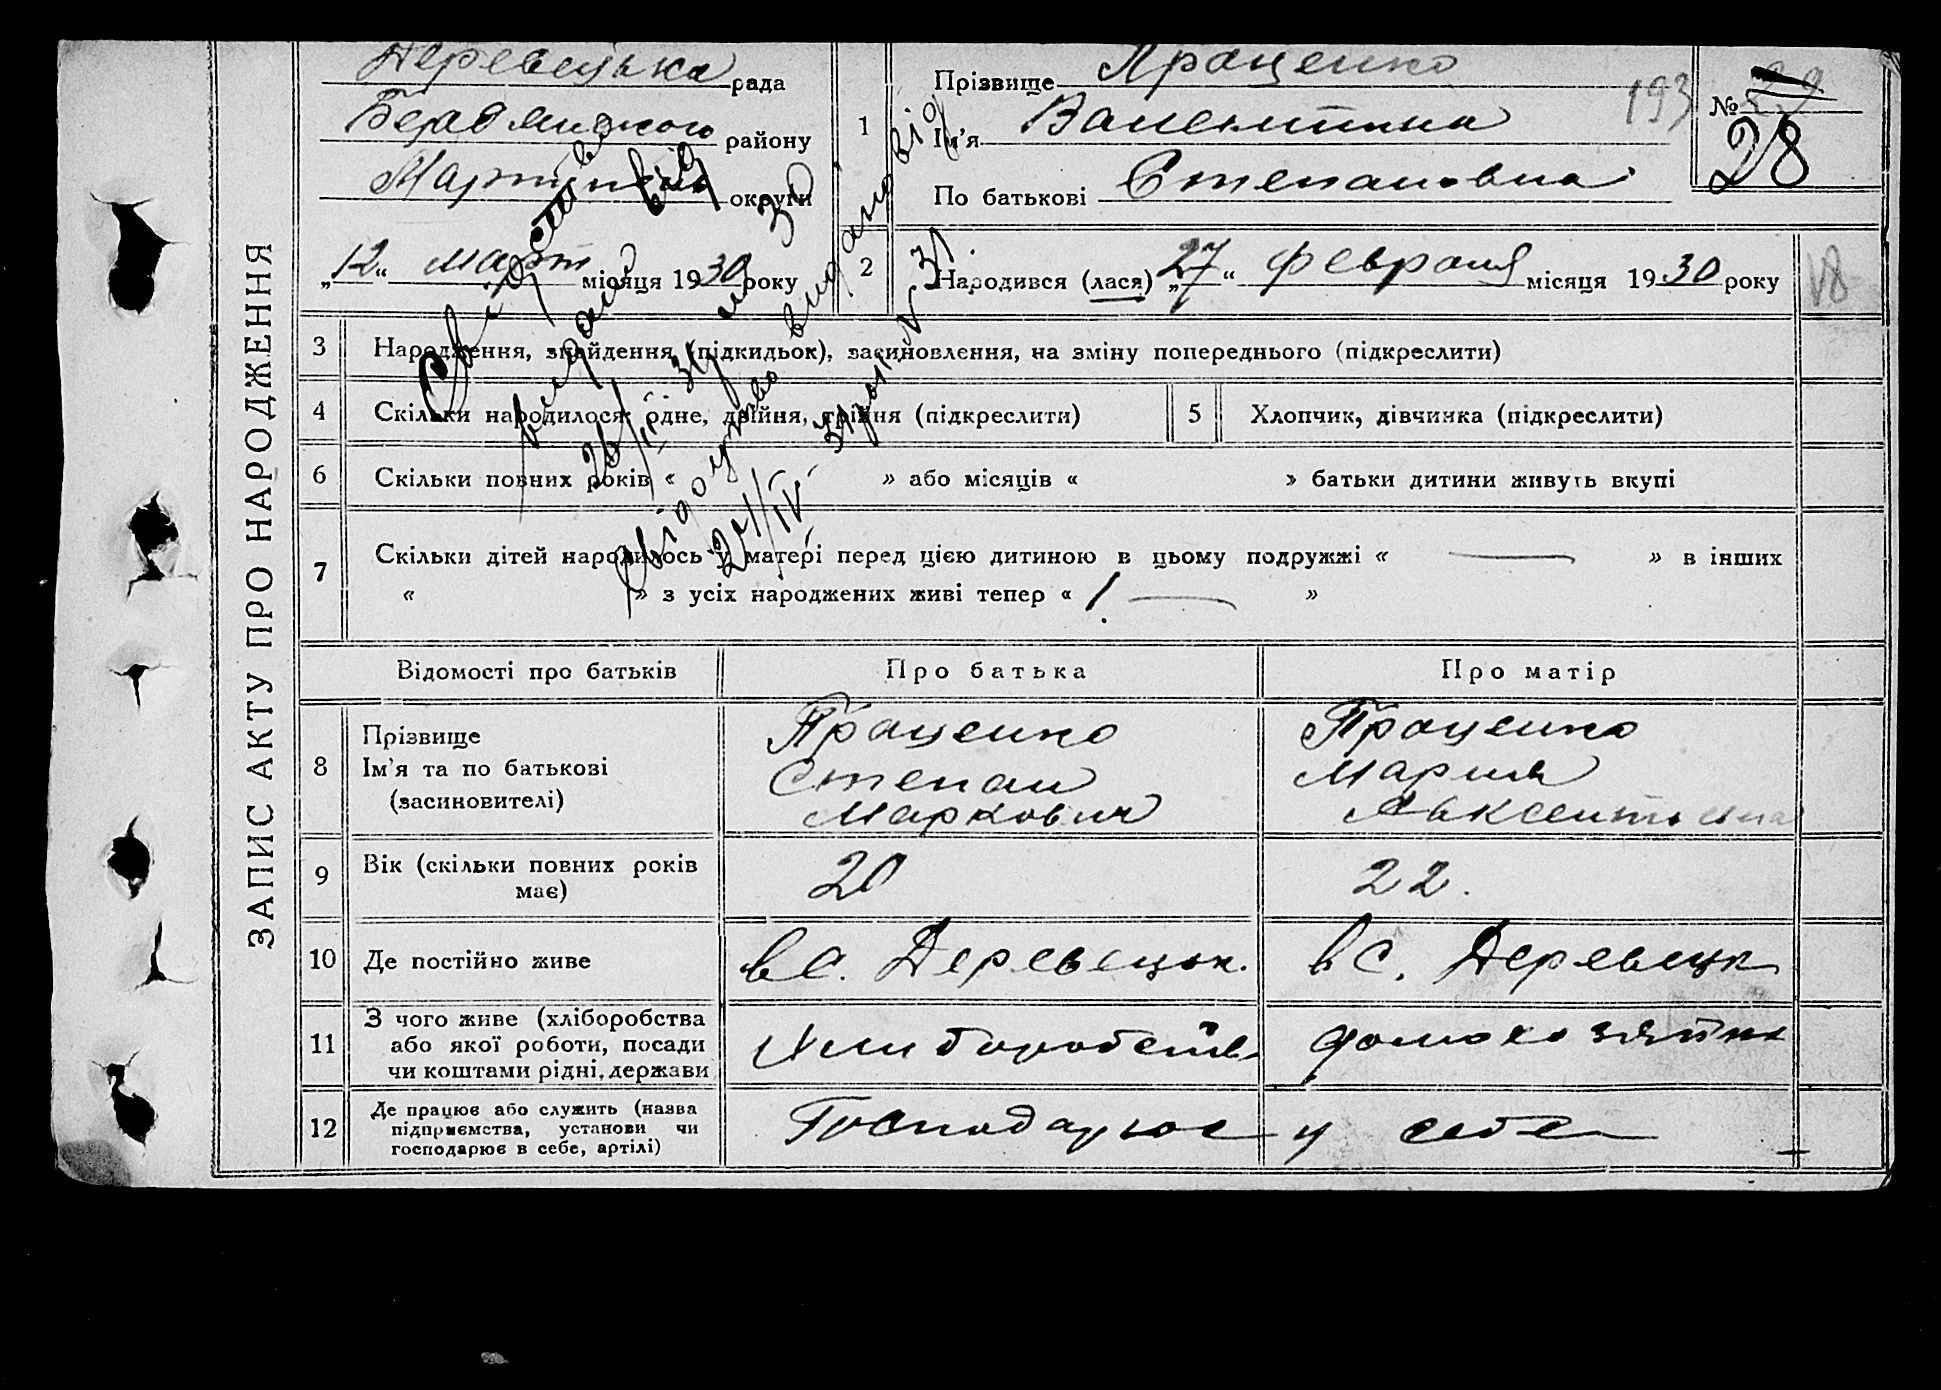 ЗАПИС АКТУ ПРО НАРОДЖЕННЯ
Деревецька рада
району
округи
„12“ март місяця 1930 року
1
Прізвище Проценко
Ім'я Валентина
По батькові Степановна
193
№
28
2
Народився (лася) „27“ февраля місяця 1930 року
V8
3 Народження, знайдення (підкидьок), засиновлення, на зміну попереднього (підкреслити)
4 Скільки народилося: одне, двійня, трійня (підкреслити)
5 Хлопчик, дівчинка (підкреслити)
6 Скільки повних років « » або місяців « » батьки дитини живуть вкупі
7 Скільки дітей народилось у матері перед цією дитиною в цьому подружжі « — » в інших
« » з усіх народжених живі тепер « 1 — »
Свідоцтво видано від
24/IV 31 рок N 31
Відомості про батьків
Про батька
Про матір
8 Прізвище
Ім'я та по батькові
(засиновителі)
Проценко
Степан
Маркович
Проценко
Мария
Авксентьевна
9 Вік (скільки повних років
має)
20
22.
10 Де постійно живе
в с. Деревецьк.
в с. Деревецк
11 З чого живе (хліборобства
або якої роботи, посади
чи коштами рідні, держави
Хлиборобств
домохозяйка
12 Де працює або служить (назва
підприємства, установи чи
господарює в себе, артілі)
Господарює у себе